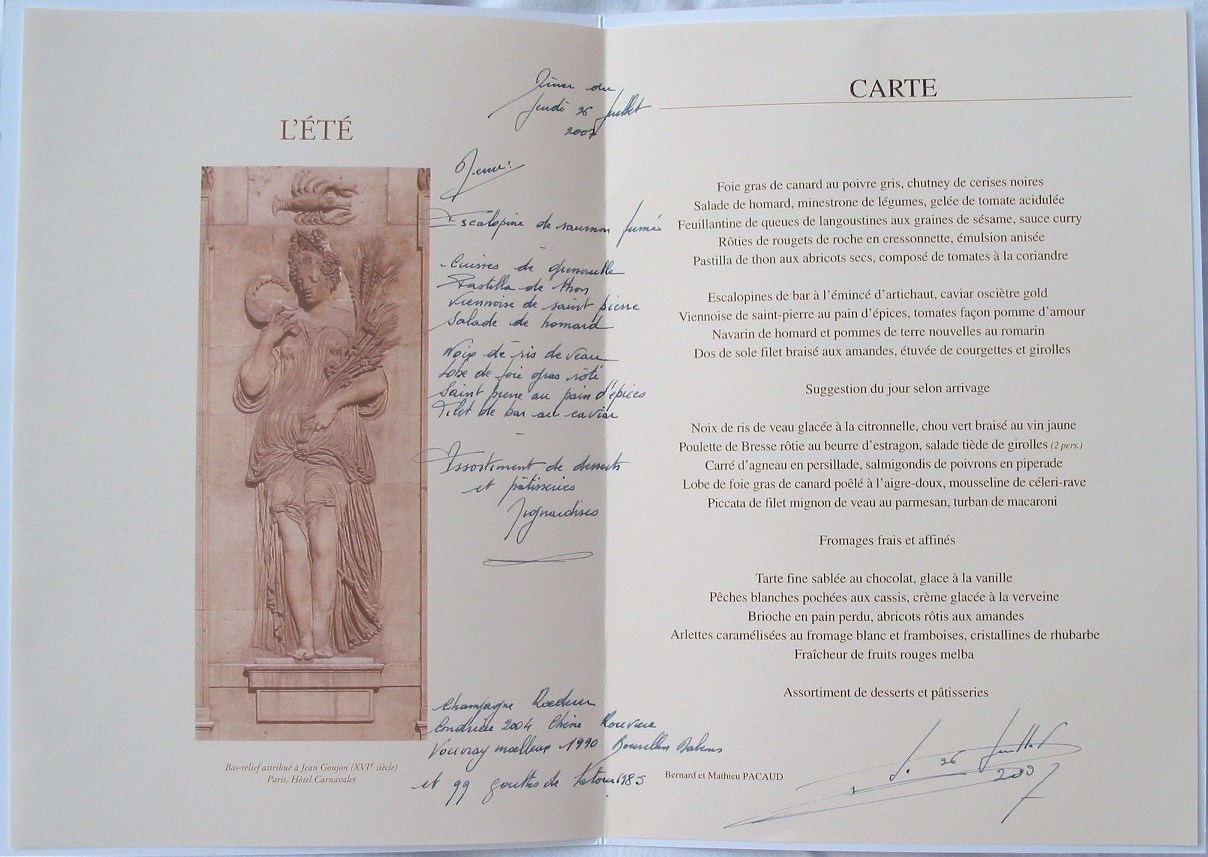 L'ÉTÉ
Dîner du
Jeudi 26 Juillet
2007
Menu:
Escalopine de saumon fumée
Cuisses de grenouille
Pastilla de thon
Viennoise de saint pierre
Salade de homard
Noix de ris de veau
Lobe de foie gras rôti
Saint pierre au pain d'épices
Filet de bar au caviar
Assortiment de desserts
et pâtisseries
Mignardises
Champagne Roederer
Condrieu 2004 Chéze
Vouvray moelleux 1990 Bourillon
et 99 gouttes de Latour 1985
Bas-relief attribué à Jean Goujon (XVIe siècle)
Paris, Hôtel Carnavalet
CARTE
Foie gras de canard au poivre gris, chutney de cerises noires
Salade de homard, minestrone de légumes, gelée de tomate acidulée
Feuillantine de queues de langoustines aux graines de sésame, sauce curry
Rôties de rougets de roche en cressonnette, émulsion anisée
Pastilla de thon aux abricots secs, composé de tomates à la coriandre
Escalopines de bar à l'émincé d'artichaut, caviar osciètre gold
Viennoise de saint-pierre au pain d'épices, tomates façon pomme d'amour
Navarin de homard et pommes de terre nouvelles au romarin
Dos de sole filet braisé aux amandes, étuvée de courgettes et girolles
Suggestion du jour selon arrivage
Noix de ris de veau glacée à la citronnelle, chou vert braisé au vin jaune
Poulette de Bresse rôtie au beurre d'estragon, salade tiède de girolles (2 pers.)
Carré d'agneau en persillade, salmigondis de poivrons en piperade
Lobe de foie gras de canard poêlé à l'aigre-doux, mousseline de céleri-rave
Piccata de filet mignon de veau au parmesan, turban de macaroni
Fromages frais et affinés
Tarte fine sablée au chocolat, glace à la vanille
Pêches blanches pochées aux cassis, crème glacée à la verveine
Brioche en pain perdu, abricots rôtis aux amandes
Arlettes caramélisées au fromage blanc et framboises, cristallines de rhubarbe
Fraîcheur de fruits rouges melba
Assortiment de desserts et pâtisseries
Bernard et Mathieu PACAUD
26 Juillet